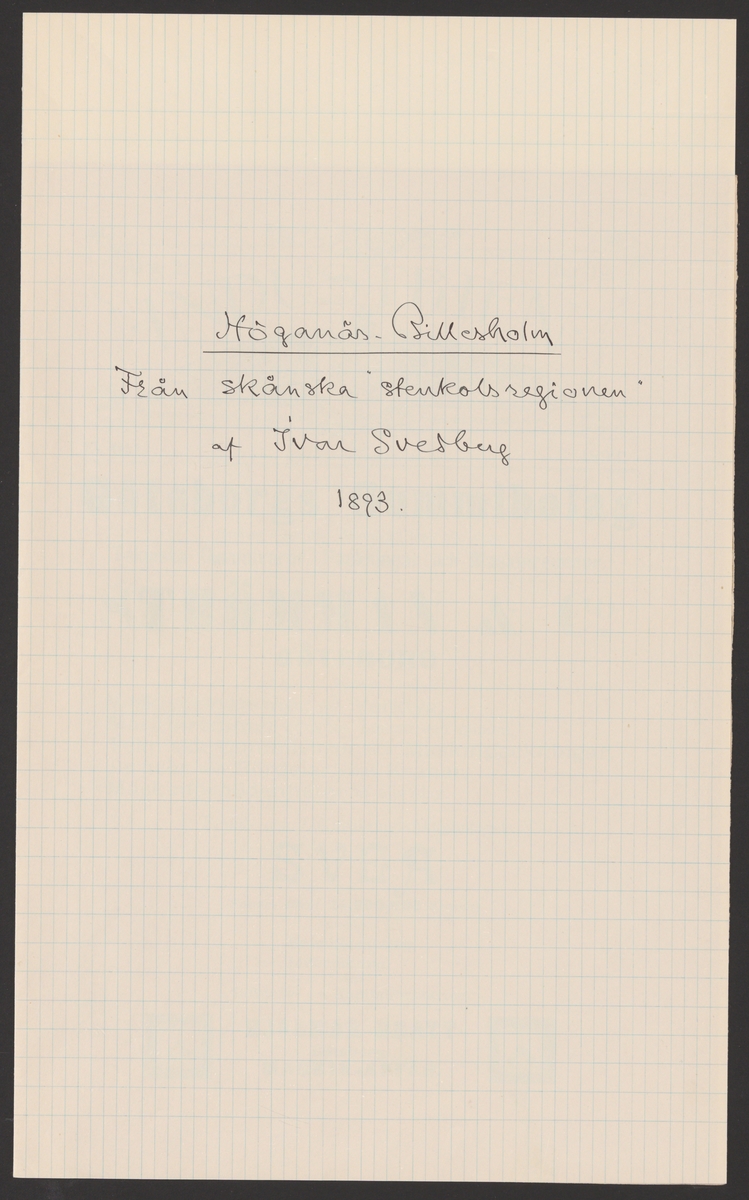 Höganäs - Billesholm
Från skånska "stenkolsregionen"
af Ivar Svedberg
1893.